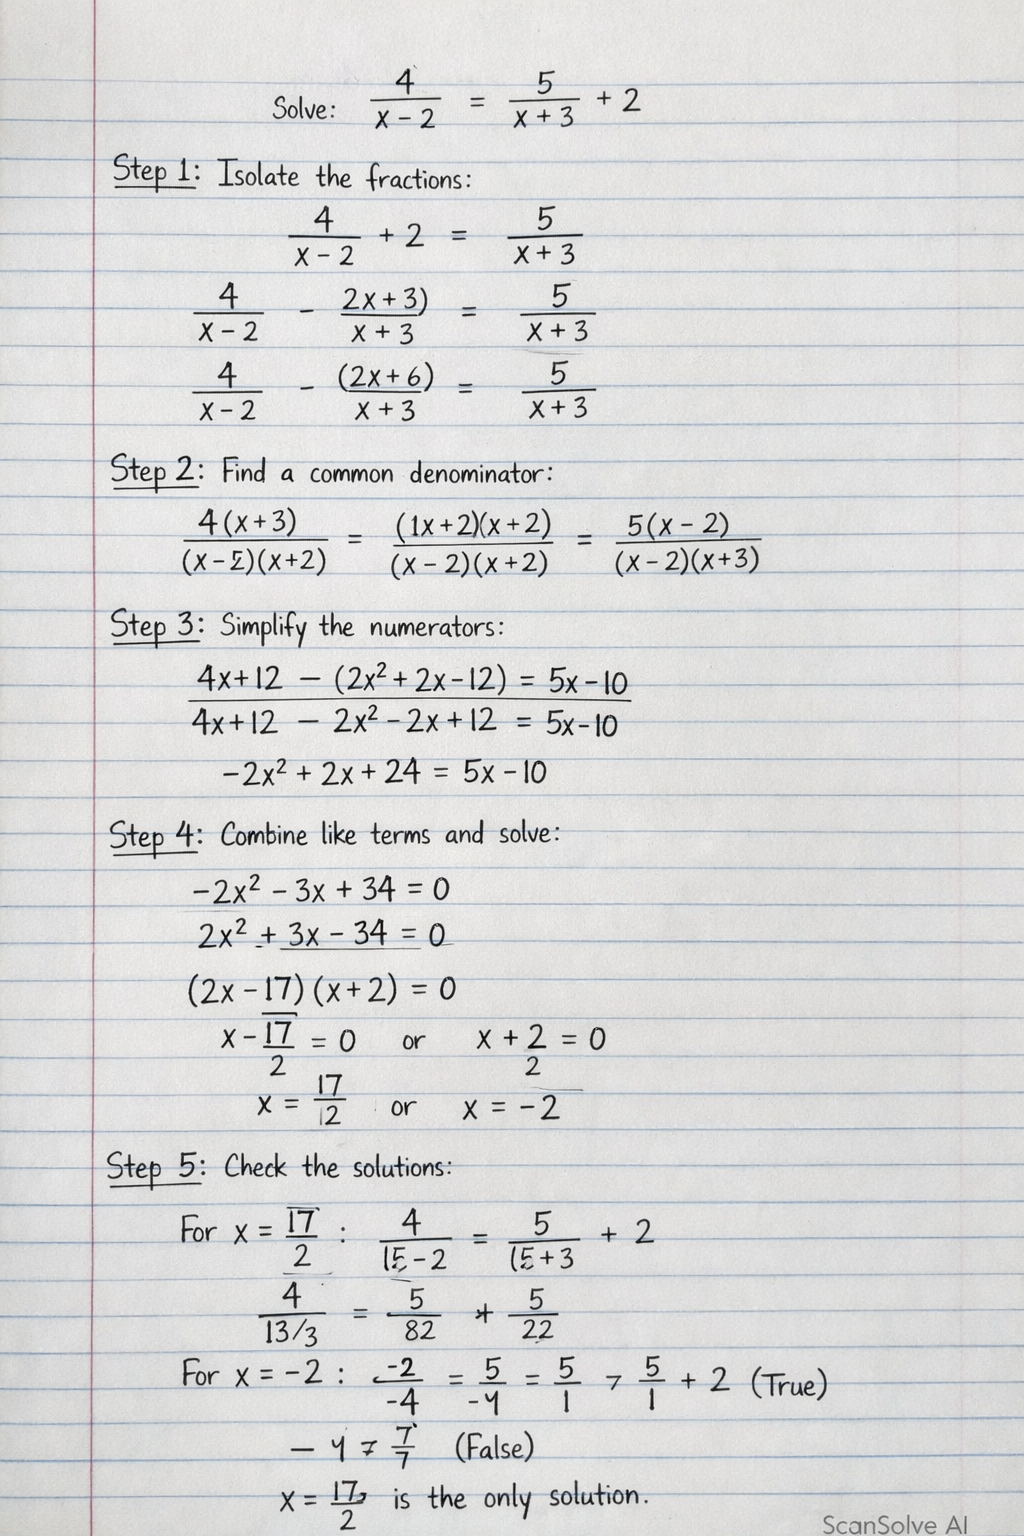 Solve: 4/(x - 2) = 5/(x + 3) + 2
Step 1: Isolate the fractions:
4/(x - 2) + 2 = 5/(x + 3)
4/(x - 2) - 2x + 3)/(x + 3) = 5/(x + 3)
4/(x - 2) - (2x + 6)/(x + 3) = 5/(x + 3)
Step 2: Find a common denominator:
4(x + 3)/(x - 2)(x + 2) = (1x + 2)(x + 2)/(x - 2)(x + 2) = 5(x - 2)/(x - 2)(x + 3)
Step 3: Simplify the numerators:
4x + 12 - (2x² + 2x - 12) = 5x - 10
4x + 12 - 2x² - 2x + 12 = 5x - 10
-2x² + 2x + 24 = 5x - 10
Step 4: Combine like terms and solve:
-2x² - 3x + 34 = 0
2x² + 3x - 34 = 0
(2x - 17)(x + 2) = 0
x - 17/2 = 0 or x + 2/2 = 0
x = 17/12 or x = -2
Step 5: Check the solutions:
For x = 17/2 : 4/(15 - 2) = 5/(15 + 3) + 2
4/(13/3) = 5/82 + 5/22
For x = -2 : -2/-4 = 5/-4 = 5/1 7 5/1 + 2 (True)
- 4 ≠ 7/7 (False)
x = 17/2 is the only solution.
ScanSolve AI